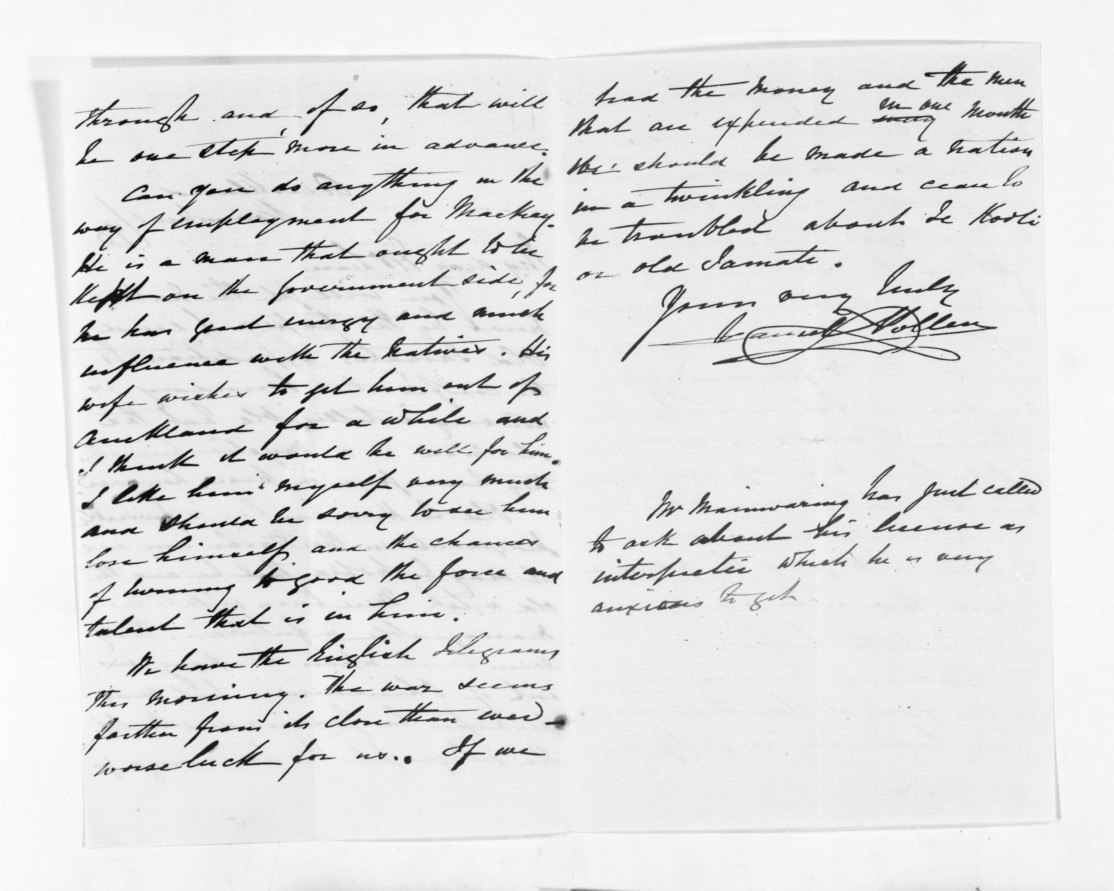 through and, if so, that will
be one step more in advance.
Can you do anything in the
way of employment for Mackay.
He is a man that ought to be
kept on the Government side, for
he has great energy and much
influence with the Natives. His
wife wishes to get him out of
Auckland for a while and
I think it would be well for him.
I like him myself very much
and should be sorry to see him
lose himself and the chances
of turning to good the force and
talent that is in him.
We have the English Telegrams
this morning. The war seems
farther from its close than ever -
worse luck for us. If we
had the money and the men
that are expended many in one month
we should be made a nation
in a twinkling and cease to
be troubled about Te Kooti
or old Tamati.
Yours very truly
Daniel Pollen
Mr Mainwaring has just called
to ask about his license as
interpreter which he is very
anxious to get